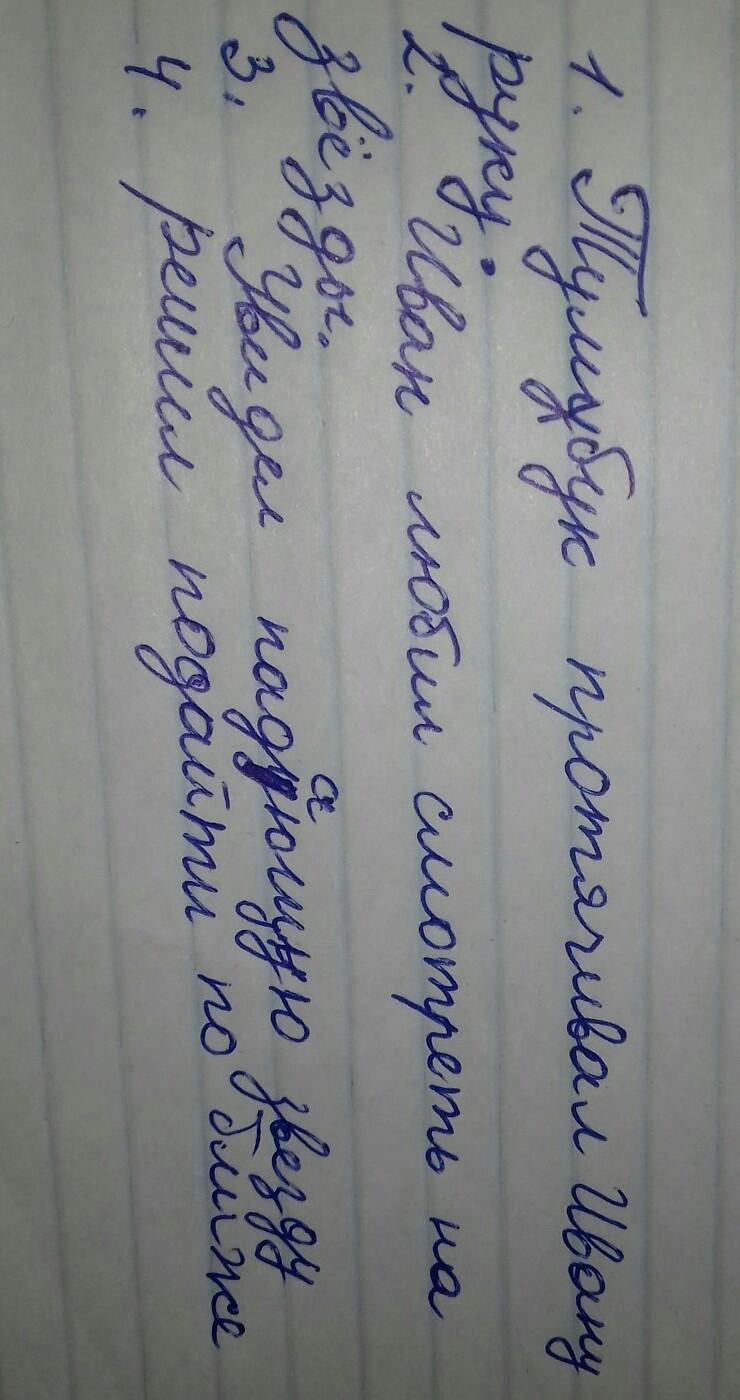 1. Тумкубук протягивал Ивану
руку.
2. Иван любил смотреть на
звёзды.
3. Увидел падающую звезду
4. решил подайти по ближе